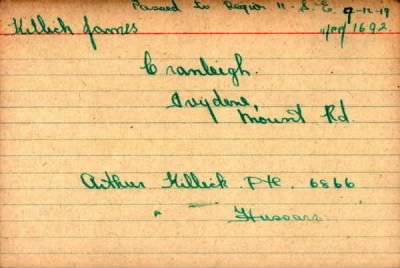 Passed to Region 11. S.E. 9-12-19
Killick James 11/PP/1692
Cranleigh.
Ivydene,
Mount Rd.
Arthur Killick Pte. 6866
" Hussars